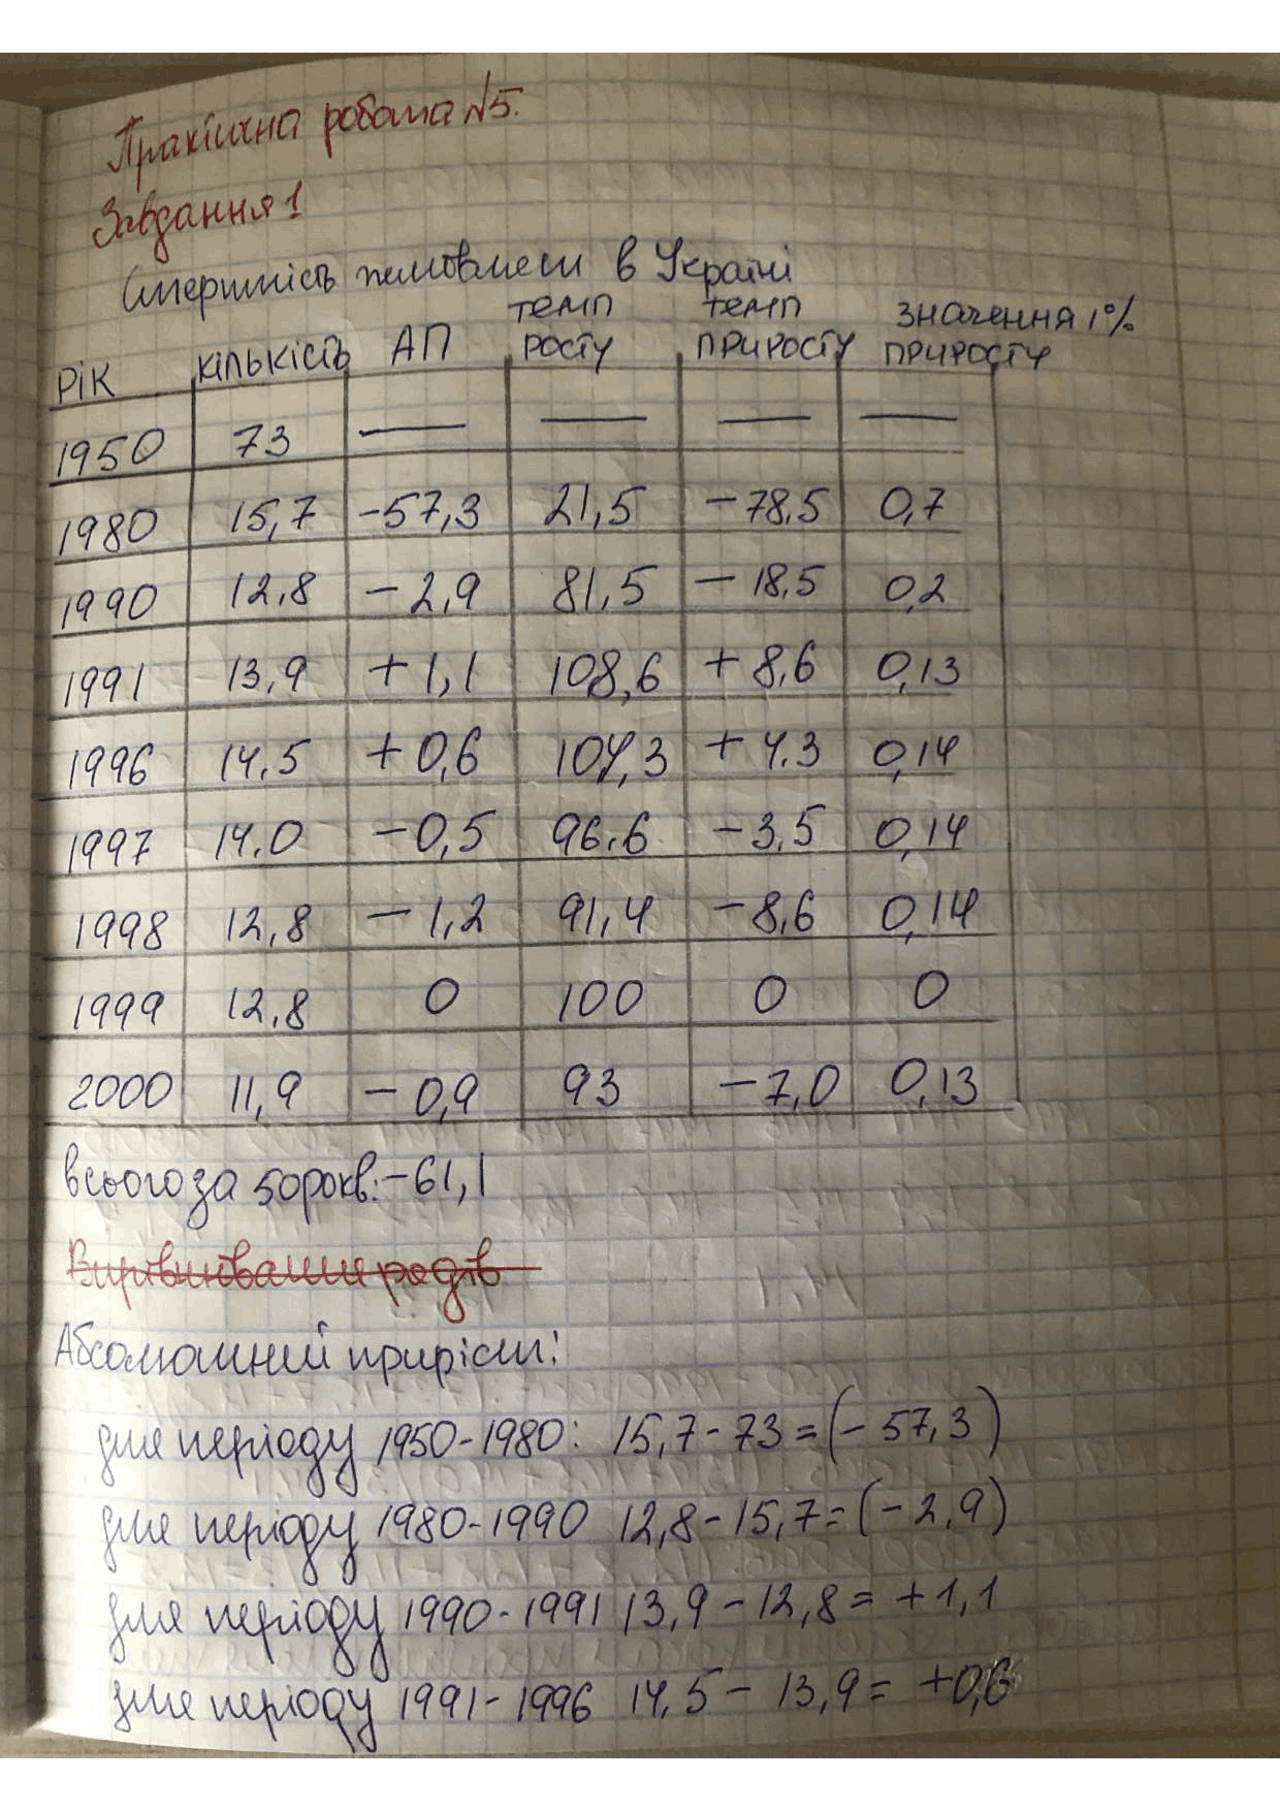 Практична робота №5.
Завдання 1
Смертність немовляти в Україні
РІК КІЛЬКІСТЬ АП ТЕМП РОСТУ ТЕМП ПРИРОСТУ ЗНАЧЕННЯ 1% ПРИРОСТУ
1950 73 — — — —
1980 15,7 -57,3 21,5 -78,5 0,7
1990 12,8 -2,9 81,5 -18,5 0,2
1991 13,9 +1,1 108,6 +8,6 0,13
1996 14,5 +0,6 104,3 +4.3 0,14
1997 14,0 -0,5 96,6 -3,5 0,14
1998 12,8 -1,2 91,4 -8,6 0,14
1999 12,8 0 100 0 0
2000 11,9 -0,9 93 -7,0 0,13
всього за 50 рокв: -61,1
Вирівнювання рядів
Абсолютний приріст:
для періоду 1950-1980: 15,7-73=(-57,3)
для періоду 1980-1990 12,8-15,7=(-2,9)
для періоду 1990-1991 13,9-12,8=+1,1
для періоду 1991-1996 14,5-13,9=+0,6